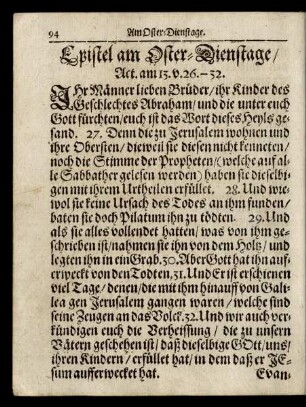 94 Am Oster-Dienstage.
Epistel am Oster-Dienstage/
Act. am 13. v. 26.–32.
IHr Männer lieben Brüder/ ihr Kinder des
Geschlechtes Abraham/ und die unter euch
Gott fürchten/ euch ist das Wort dieses Heyls ge-
sand. 27. Denn die zu Jerusalem wohnen und
ihre Obersten/ dieweil sie diesen nicht kenneten/
noch die Stimme der Propheten/ (welche auf al-
le Sabbather gelesen werden) haben sie dieselbi-
gen mit ihrem Urtheilen erfüllet. 28. Und wie-
wol sie keine Ursach des Todes an ihm funden/
baten sie doch Pilatum ihn zu tödten. 29. Und
als sie alles vollendet hatten/ was von ihm ge-
schrieben ist/ nahmen sie ihn von dem Holtz/ und
legten ihn in ein Grab. 30. Aber Gott hat ihn auf-
erweckt von den Todten. 31. Und Er ist erschienen
viel Tage/ denen/ die mit ihm hinauff von Gali-
lea gen Jerusalem gangen waren/ welche sind
seine Zeugen an das Volck. 32. Und wir auch ver-
kündigen euch die Verheissung/ die zu unsern
Vätern geschehen ist/ daß dieselbige GOtt/ uns/
ihren Kindern/ erfüllet hat/ in dem daß er JE-
sum aufferwecket hat. Evan-